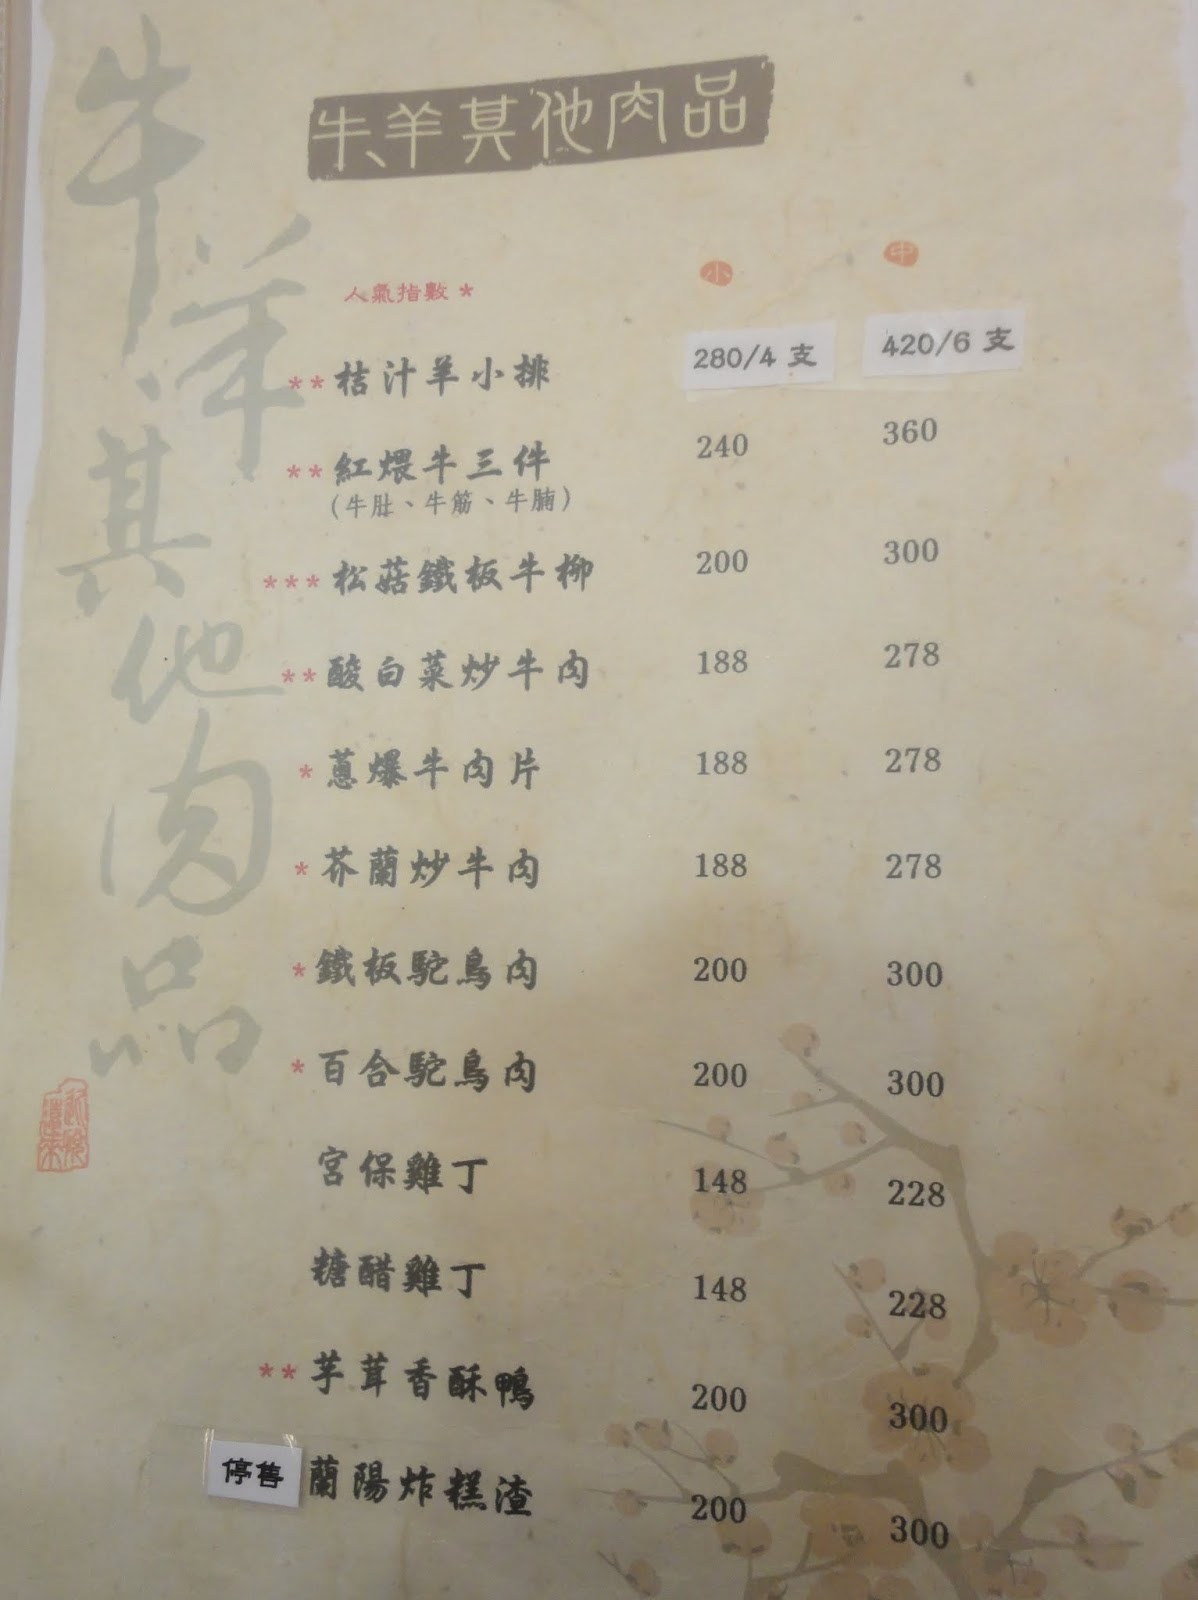 牛羊其他肉品
牛、羊其他肉品
小 中
人氣指數 *
** 桔汁羊小排 280/4 支 420/6 支
** 紅煨牛三件 240 360
(牛肚、牛筋、牛腩)
*** 松菇鐵板牛柳 200 300
** 酸白菜炒牛肉 188 278
* 蔥爆牛肉片 188 278
* 芥蘭炒牛肉 188 278
* 鐵板駝鳥肉 200 300
* 百合駝鳥肉 200 300
宮保雞丁 148 228
糖醋雞丁 148 228
** 芋茸香酥鴨 200 300
停售 蘭陽炸糕渣 200 300